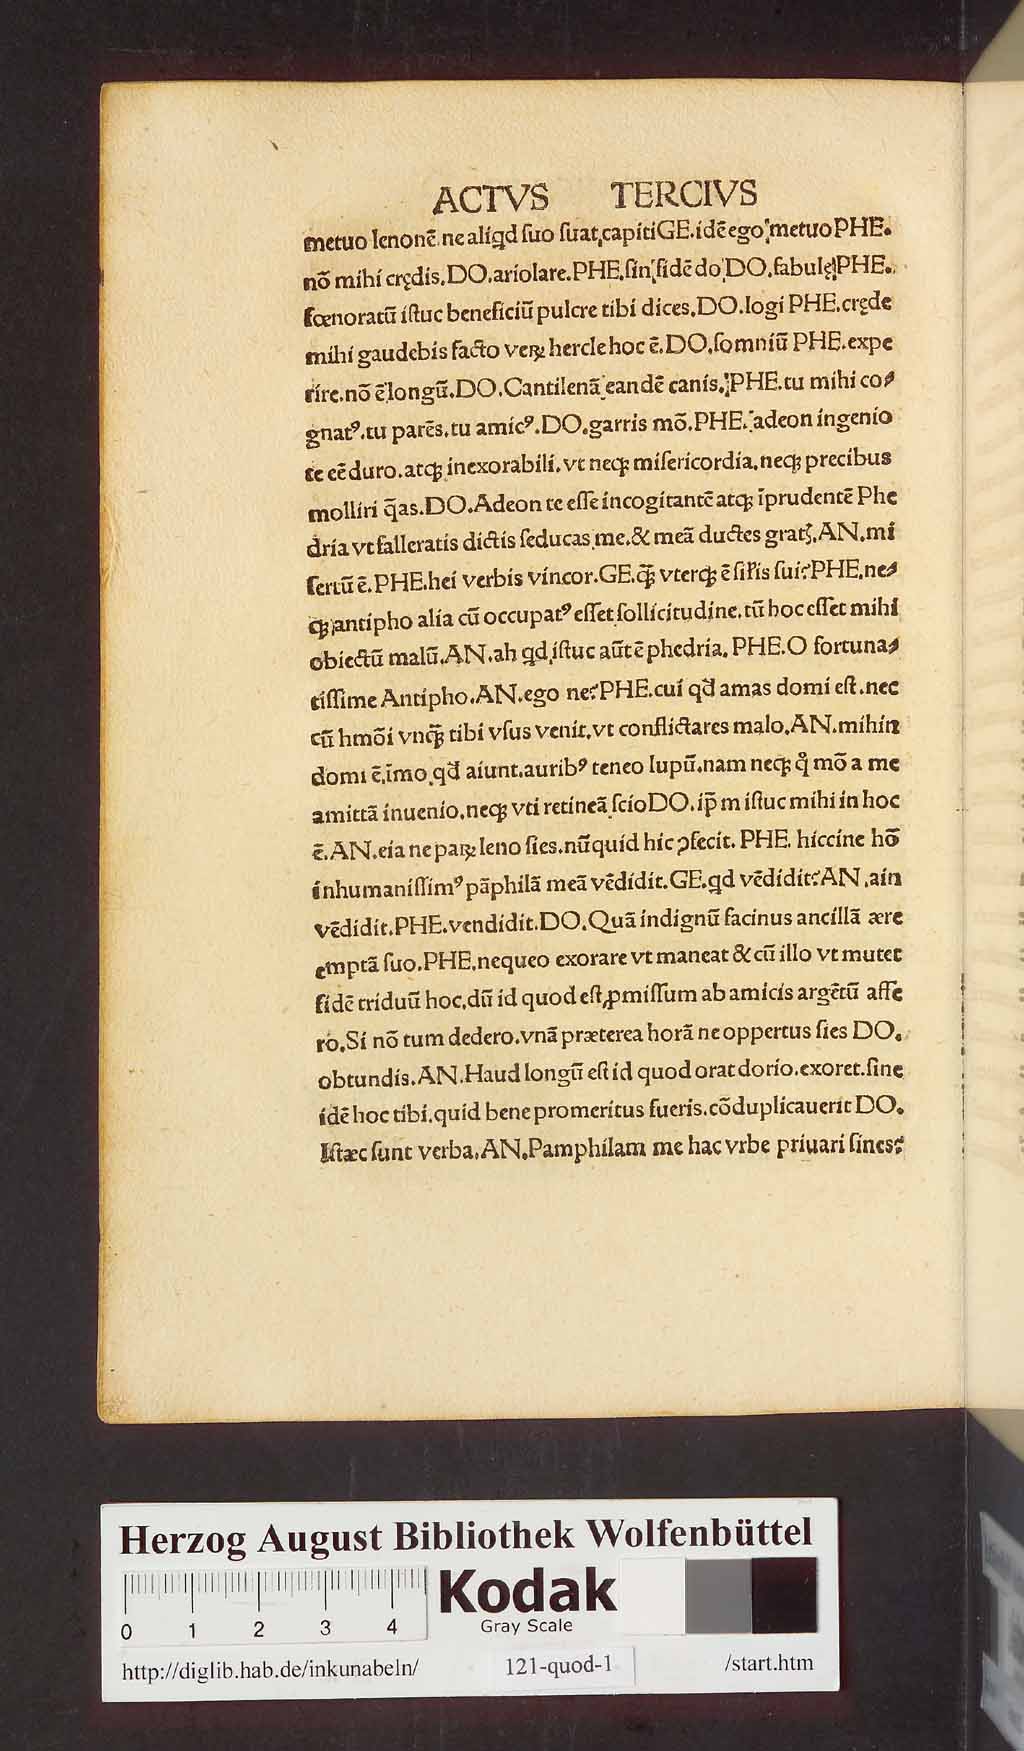 ACTVS TERCIVS
metuo lenonē ne aliqd ſuo ſuat capiti GE. idē ego metuo PHE.
nō mihi cre̜dis. DO. ariolare. PHE. ſin fidē do DO. fabule̜ PHE.
fœnoratū iſtuc beneficiū pulcre tibi dices. DO. logi PHE. cre̜de
mihi gaudebis facto veꝝ hercle hoc ē. DO. ſomniū PHE. expe
rire. nō ē longū. DO. Cantilenā eandē canis. PHE. tu mihi co⸗
gnatꝰ. tu parēs. tu amicꝰ. DO. garris mō. PHE. adeon ingenio
te eē duro. atqꝫ inexorabili. vt neqꝫ miſericordia. neqꝫ precibus
molliri q̄as. DO. Adeon te eſſe incogitantē atqꝫ īprudentē Phe
dria vt falleratis dictis ſeducas me. & meā ductes gratꝭ. AN. mi
ſertū ē. PHE. hei verbis vincor. GE. q̄ꝫ vterqꝫ ē ſiľis ſui? PHE. ne⸗
qꝫ antipho alia cū occupatꝰ eſſet ſollicitudine. tū hoc eſſet mihi
obiectū malū. AN. ah qd iſtuc aūt ē phedria. PHE. O fortuna⸗
tiſſime Antipho. AN. ego ne? PHE. cui qd̄ amas domi eſt. nec
cū hmōi vnq̄ꝫ tibi vſus venit. vt conflictares malo. AN. mihin
domi ē. īmo qd̄ aiunt. auribꝰ teneo lupū. nam neqꝫ qͦ mō a me
amittā inuenio. neqꝫ vti retineā ſcio DO. ip̄m iſtuc mihi in hoc
ē. AN. eia ne paꝝ leno ſies. nūquid hic ꝯfecit. PHE. hiccine hō
inhumaniſſimꝰ pāphilā meā vēdidit. GE. qd vēdidit? AN. ain
vēdidit. PHE. vendidit. DO. Quā indignū facinus ancillā ære
emptā ſuo. PHE. nequeo exorare vt maneat & cū illo vt mutet
fidē triduū hoc. dū id quod eſt ꝓmiſſum ab amicis argētū affe
ro. Si nō tum dedero. vnā præterea horā ne oppertus ſies DO.
obtundis. AN. Haud longū eſt id quod orat dorio. exoret. ſine
idē hoc tibi. quid bene promeritus fueris. cōduplicauerit DO.
Iſtæc ſunt verba. AN. Pamphilam me hac vrbe priuari ſines?
Herzog August Bibliothek Wolfenbüttel
0 1 2 3 4
Kodak
Gray Scale
http://diglib.hab.de/inkunabeln/ 121-quod-1 /start.htm